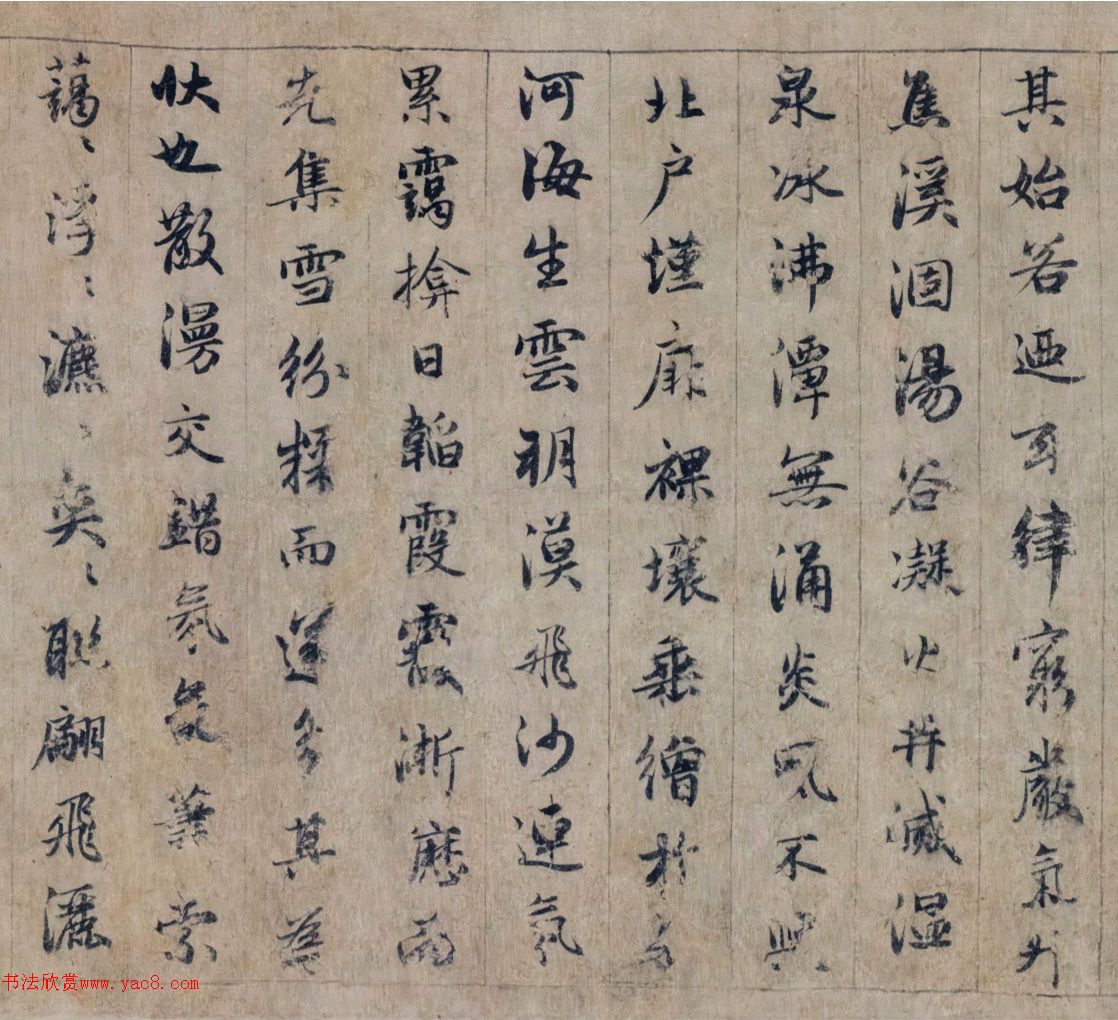 其始若迺玄律窮嚴氣升
焦溪涸湯谷凝火井滅温
泉冰沸潭無涌炎風不興
北户墐扉裸壤垂繒於是
河海生雲朔漠飛沙連氛
累靄揜日韜霞霰淅瀝而
先集雪紛糅而遂多其為
狀也散漫交錯氛氳蕭索
藹〻浮〻瀌〻奕〻聯翩飛灑
书法欣赏www.yac8.com